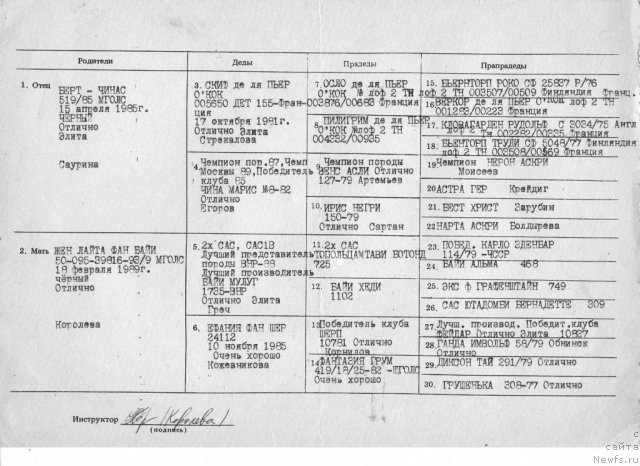 Родители Деды Прадеды Прапрадеды
1. Отец
БЕРТ - ЧИНАС
519/85 МГОЛС
15 апреля 1985г.
ЧЕРНЫЙ
Отлично
Элита
Саурина
3. СКИФ де ля ПЬЕР
О'КОК
005650 ДЕТ 155-Фран-
ция
17 октября 1981г.
Отлично Элита
Стрекалова
4. Чемпион пор.87,Чемп
Москвы 89,Победитель
клуба 85
ЧИНА МАРИС №8-82
Отлично
Егоров
7. ОСЛО де ля ПЬЕР
О'КОК № лоф 2 ТН
003876/00683 Франция
8. ПИЛИГРИМ де ля ПЬЕР
О'КОК №лоф 2 ТН
004332/00935
9. Чемпион породы
ВЕНС АСЛИ Отлично
127-79 Артемьев
10. ИРИС НЕГРИ
150-79
Отлично Сартан
15. БЬЕРНТОРП РОКО СФ 25837 Р/76
лоф 2 ТН 003507/00509 Финляндия Франц.
16 ВЕРКОР де ля ПЬЕР О'КОК лоф 2 ТН
001283/00223 Франция
17. КЛОФАБАРДЕН РУДОЛЬФ С 3034/75 Англ
лоф 2 ТН 002282/00335 Франция
18. БЬЕНТОРП ТРУЛИ СФ 5048/77 Финлянд
лоф 2 ТН 003508/00569 Франция
19 Чемпион НЕРОН АСКРИ
Моисеев
20 АСТРА ГЕР Крейдиг
21. БЕСТ ХРИСТ Зарубин
22 НАРТА АСКРИ Болдырева
2. Мать
ЖЕН ЛАЙТА ФАН БАЙИ
50-095-39816-93/9 МГОЛС
18 февраля 1989г.
чёрный
Отлично
Королева
5. 2х САС, CACIB
Лучший представитель
породы ВНР-88
Лучший производитель
БАЙИ МУЛУГ
1735-ВНР
Отлично Элита
Греч
6. ЕФАНИЯ ФАН ШЕР
24112
10 ноября 1985
Очень хорошо
Кожевникова
11. 2х САС
ТОПОЛЬЦАМТАВИ БОТОНД
725
12. БАЙИ ХЕДИ
1102
13 Победитель клуба
ШЕРП
10781 Отлично
Корнилов
14. ФАНТАЗИЯ ГРУМ
419/18/25-82 -МГОЛС
Очень хорошо
23. ПОБЕД. КАРЛО ЭДЕНБАР
114/79 -ЧССР
24. БАЙИ АЛЬМА 468
25. ЭКС ф ГРАФЕНШТАЙН 749
26. САС ЮТАДОМБИ БЕРНАДЕТТЕ 309
27 Лучш. производ. Победит.клуба
ФЕЙДАР Отлично Элита 10827
28. ГАНДА ИМВОЛЬФ 58/79 Обнинск
Отлично
29. ДИКСОН ТАЙ 291/79 Отлично
30. ГРУШЕНЬКА 308-77 Отлично
Инструктор (Королева)
(подпись)
с
сайта
Newfs.ru